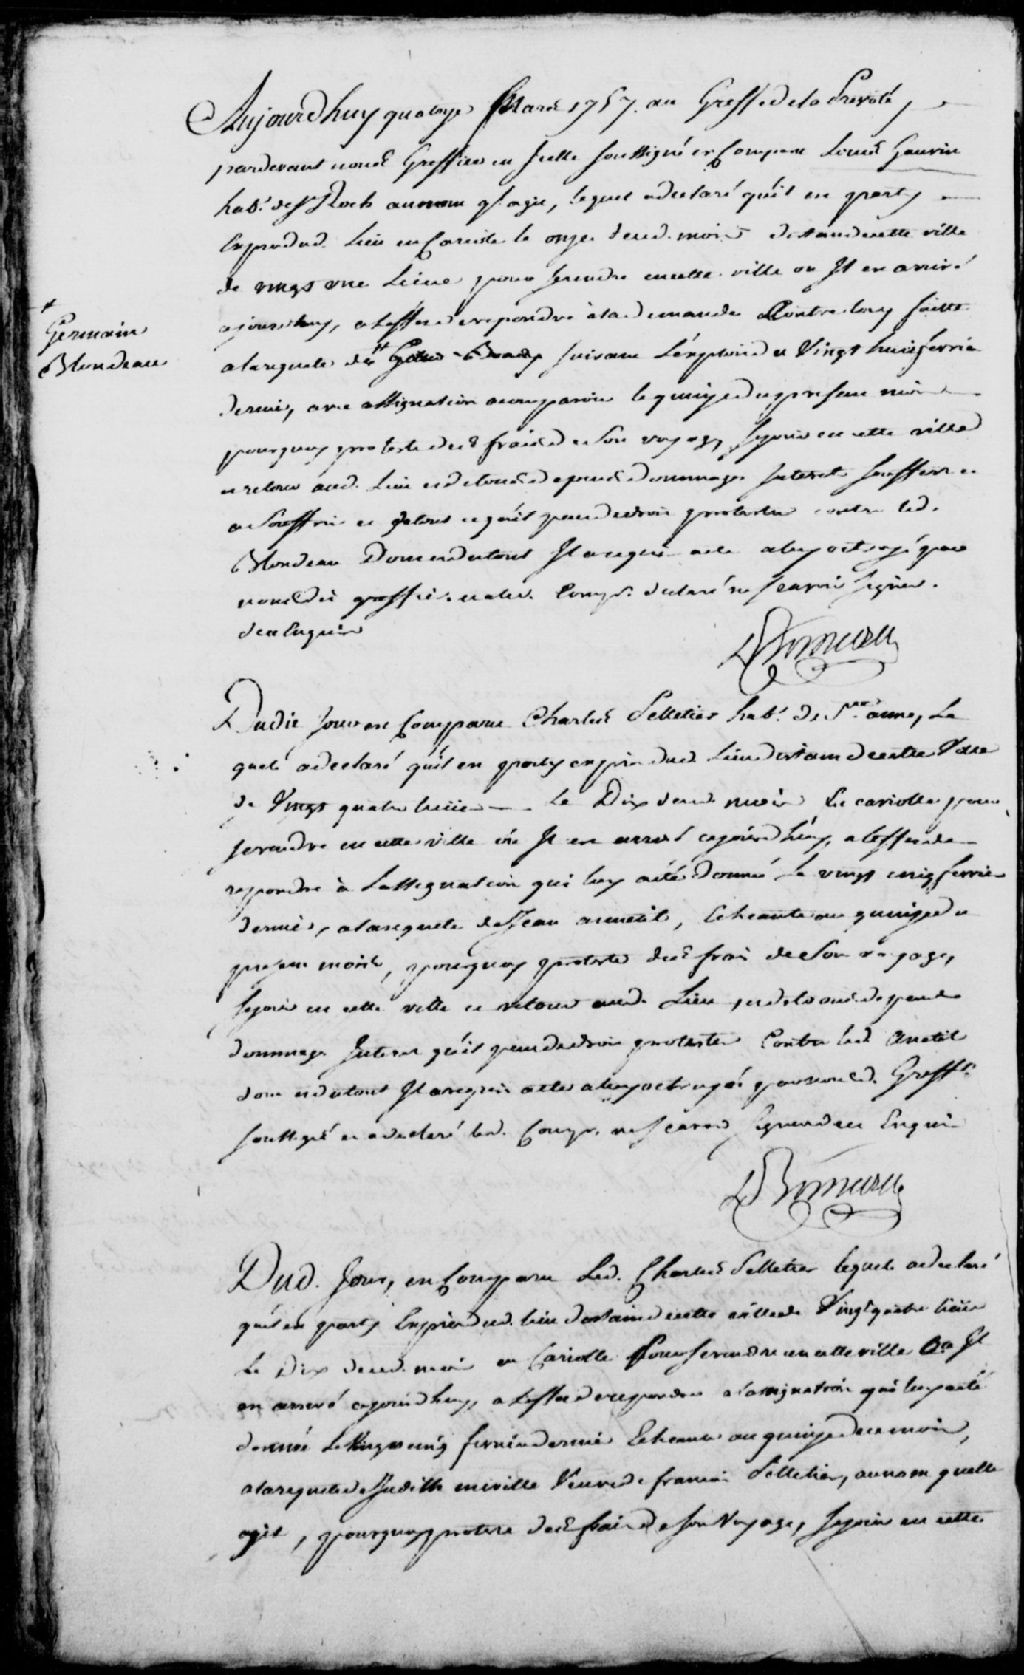 Aujourdhuy quatorze Mars 1757. au Greffe de la Prevoté,
pardevant nous Greffier en Icelle soussigné en Comparu Louis Gauvin
habt. de St. Roch au nom ql agit, lequel a declaré qu'il en party
Exprès dud. Lieu en Cariole le onze dud. mois distant de cette ville
de vingt une Lieue pour se rendre en cette ville ou Il en arrivé
ajourdhuy, a Leffet de repondre a la demande Contre luy faitte
+
Germain
Blondeau
a la requete de + suivant L'exploit du Vingt huit fevrie
dernier, avec assignation a comparoir le quinze du present mois
pourquoy proteste des frais de Son voyage, Sejour en cette ville
et retour aud. Lieu et de tous depens dommages Interest soufferts
a Souffrir et de tout ce qu'il peut de droit protester contre led.
Blondeau Dont et du tout Il a requis acte a luy octroyé par
nousdit greffier et a led. Comp. declaré ne scavoir signer.
de ce Enquis
Dudit Jour en Comparu Charles Pelletier habt. de Ste. anne, Le
quel a declaré qu'il en party exprès dud. Lieu distant de cette Ville
de Vingt quatre lieue le Dix dud. mois En cariolle pour
se rendre en cette ville ou Il en arrivé cejourdhuy, a Leffet de
repondre à Lassignation qui luy a été Donné Le vingt cinq fevrier
dernier, a la requete de Jean anctil, Echeante au quinze du
present mois, pourquoy proteste des frais de Son voyage,
Sejour en cette ville et retour aud. Lieu, et de tous depens
dommages Interest qu'il peut de droit protester Contre led. Anctil
dont et du tout Il a requis acte a luy octroyé par nousd. Greffr.
soussigné et a declaré led. Comp. ne scavoir Signer de ce Enquis
Dud. Jour, en Comparu Led. Charles Pelletier lequel a declaré
qu'il en party Exprès dud. lieu distant de cette ville de Vingt quatre lieue
Le Dix dud. mois en Cariolle Pour se rendre en cette ville Ou Il
en arrivé cejourdhuy, a Leffet de repondre a lassignation qui luy a été
donné Le Vingt cinq fevrier dernier Echeante au quinze de ce mois,
a la requete de Judith miville Veuve de francois Pelletier, au nom quelle
agit, pourquoy proteste des frais de son Voyage, Sejour en cette